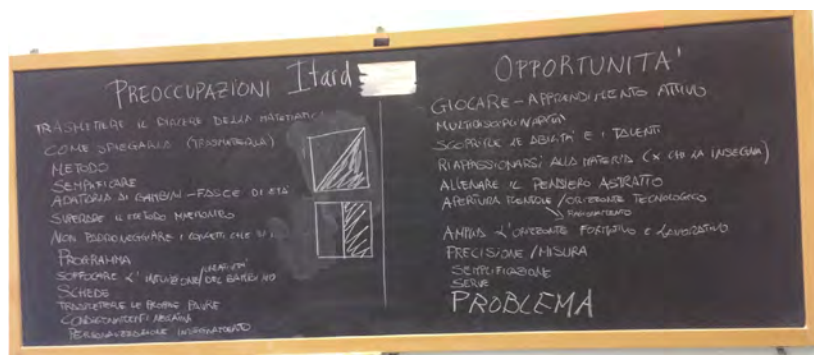 PREOCCUPAZIONI
TRASMETTERE IL PIACERE DELLA MATEMATICA
COME SPIEGARLA (TRASMETTERLA)
METODO
SEMPLIFICARE
ADATTARLA AI BAMBINI - FASCE DI ETÀ
SUPERARE IL METODO MNEMONICO
NON PADRONEGGIARE I CONCETTI CHE SI
PROGRAMMA
SOFFOCARE L'INTUIZIONE/CREATIVITÀ DEL BAMBINO
SCHEDE
TRASMETTERE LE PROPRIE PAURE
CONDIZIONAMENTI NEGATIVI
PERSONALIZZAZIONE INSEGNAMENTO
Itard
OPPORTUNITA'
GIOCARE - APPRENDIMENTO ATTIVO
MULTIDISCIPLINARITÀ
SCOPRIRE LE ABILITÀ E I TALENTI
RIAPPASSIONARSI ALLA MATERIA (X CHI LA INSEGNA)
ALLENARE IL PENSIERO ASTRATTO
APERTURA MENTALE / ORIZZONTE TECNOLOGICO
RAGIONAMENTO
AMPLIA L'ORIZZONTE FORMATIVO E LAVORATIVO
PRECISIONE / MISURA
SEMPLIFICAZIONE
SERVE
PROBLEMA